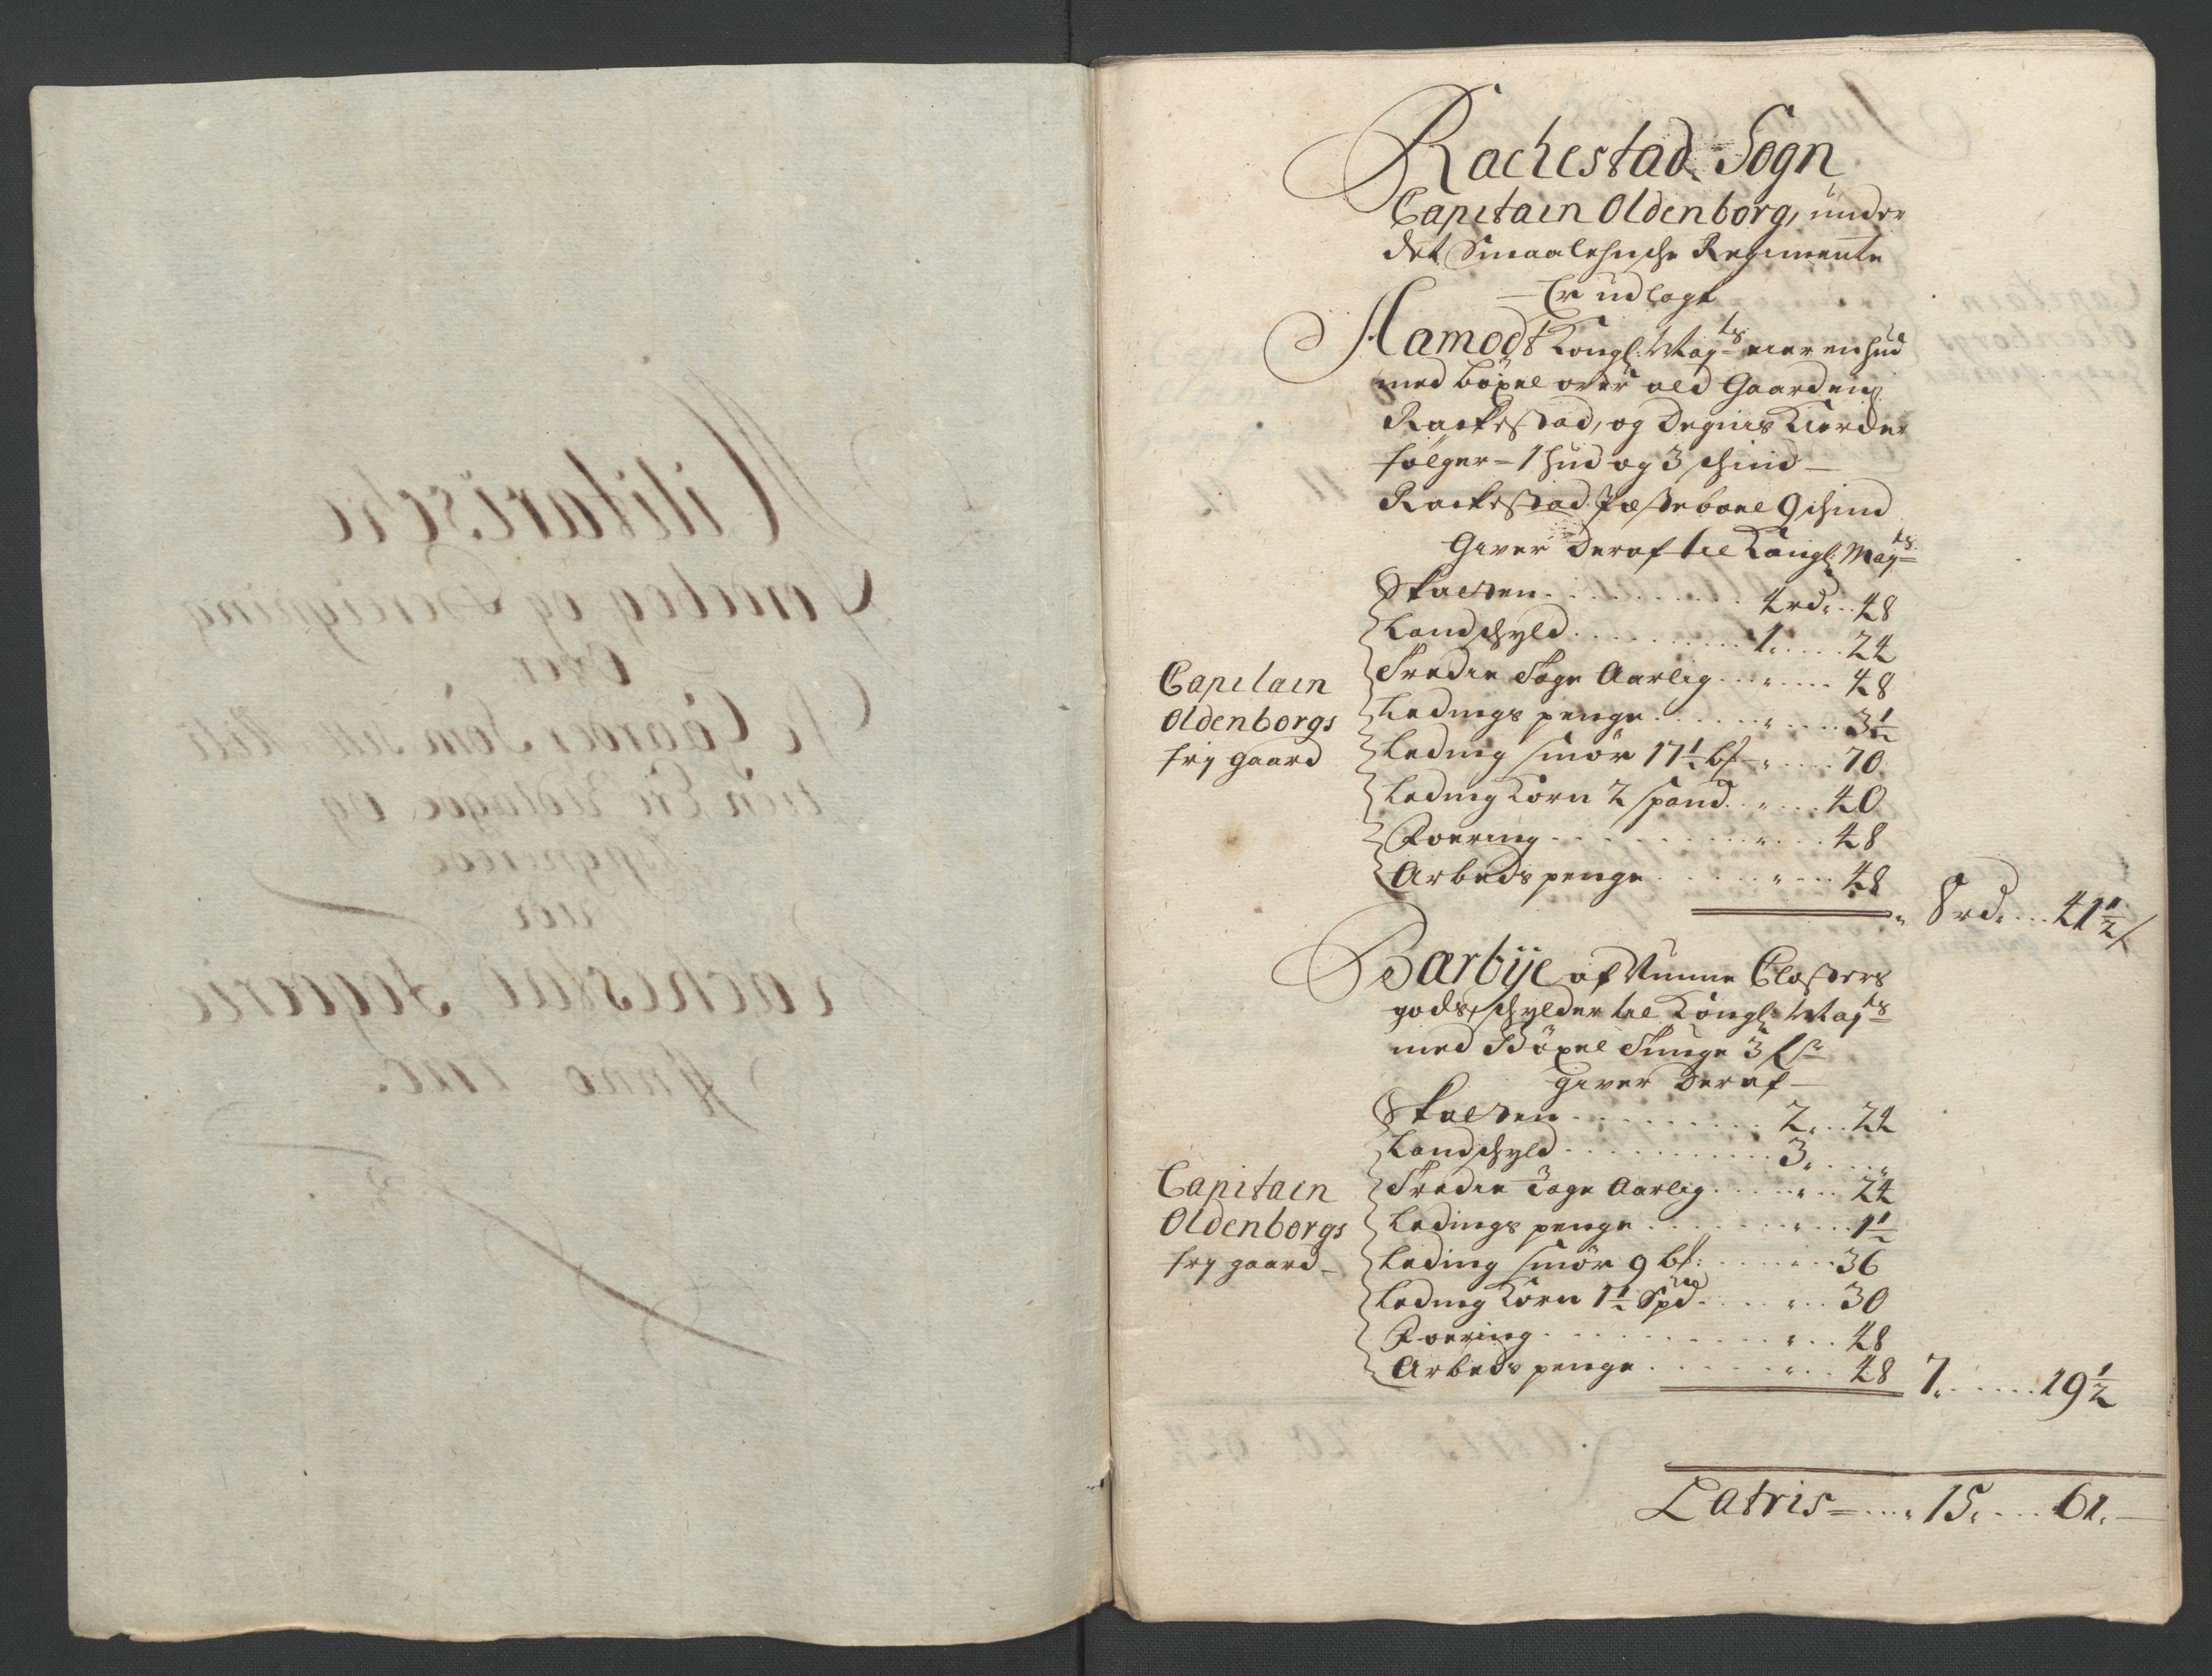 Rachestad Sogn
Capitain Oldenborg, under
det Smaalehnsche Regimente
Er udlagt
Hamodt Kongl: May:ts eier en hud
med böxel over ald Gaarden,
Rackestad, og Degnis Kierder
følger 1 hud og 3 schind
Rackestad Præsteboel 9 schind
Giver deraf til Kongl: May:ts
Skatten 4 rd 48
Landschyld 1 24
Tredie Tage Aarlig 48
Ledings penge 3½
Leding smör 17½ b£ 70
Leding Korn 2 spand 40
Foering 48
Arbeds penge 48
8 rd 41½ s
Capitain
Oldenborgs
fry gaard
Bærbije af Nunne Closters
gods, schylder til Kongl: May:ts
med Böxel Tunge 3 £s:
Giver Deraf
Skatten 2 24
Landschyld 3
Tredie Tage Aarlig 24
Ledings penge 1½
Leding smör 9 b£: 36
Leding Korn 1½ Spd 30
Foering 48
Arbeds penge 48
7 19½
Capitain
Oldenborgs
fry gaard
Latris 15 61